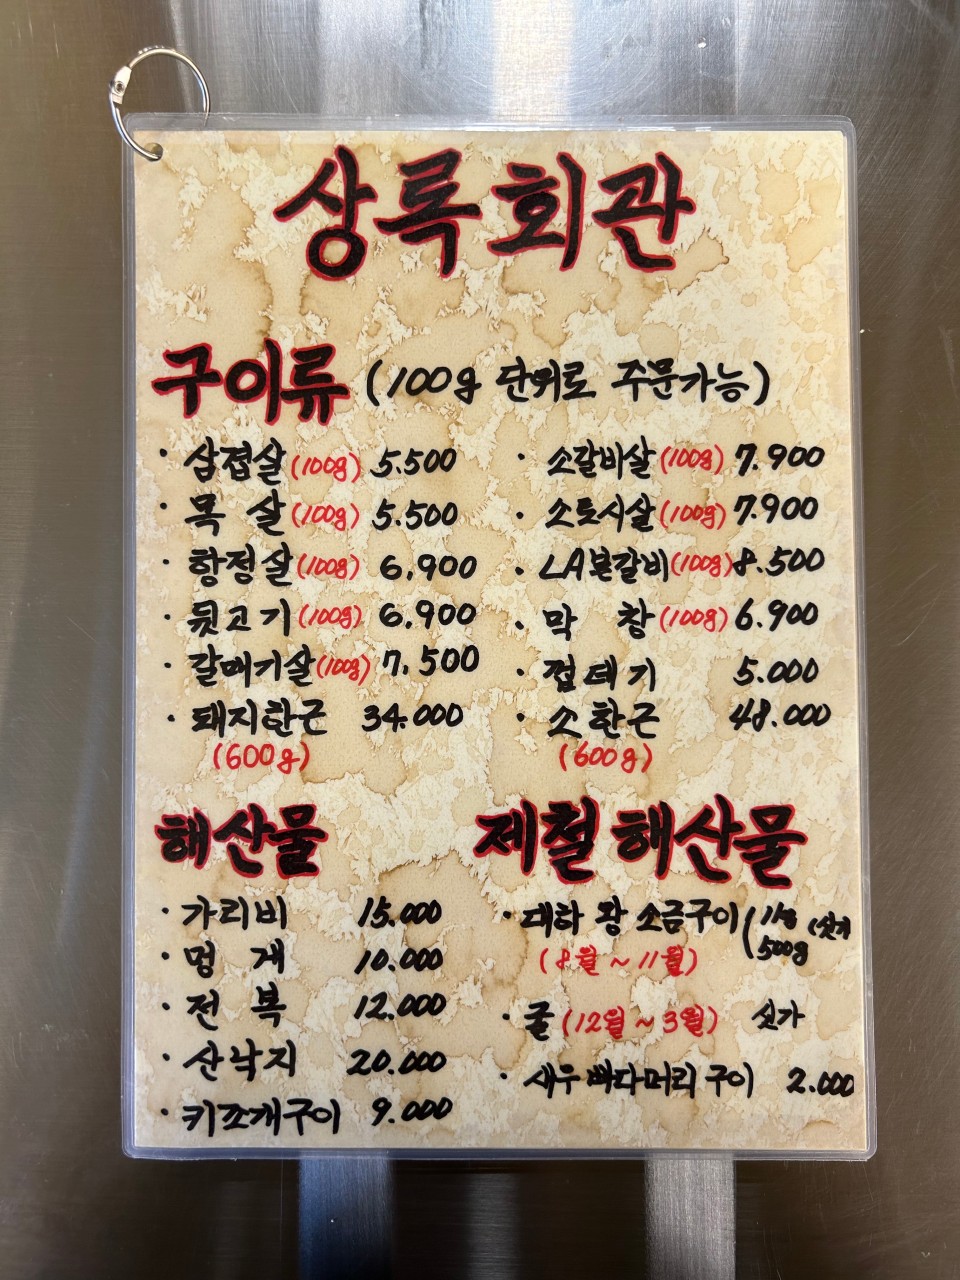 상록회관
구이류 (100g 단위로 주문가능)
· 삼겹살 (100g) 5.500
· 목 살 (100g) 5.500
· 항정살 (100g) 6,900
· 뒷고기 (100g) 6,900
· 갈매기살 (100g) 7,500
· 돼지한근 34.000
(600g)
· 소갈비살 (100g) 7.900
· 소토시살 (100g) 7.900
· LA본갈비 (100g) 8.500
· 막 창 (100g) 6.900
· 껍데기 5.000
· 소한근 48.000
(600g)
해산물
· 가리비 15.000
· 멍 게 10.000
· 전 복 12.000
· 산낙지 20.000
· 키조개구이 9.000
제철 해산물
· 대하 왕 소금구이 (1kg
500g (싯가
(8월 ~ 11월)
· 굴 (12월 ~ 3월) 싯가
· 새우 빠다머리 구이 2.000